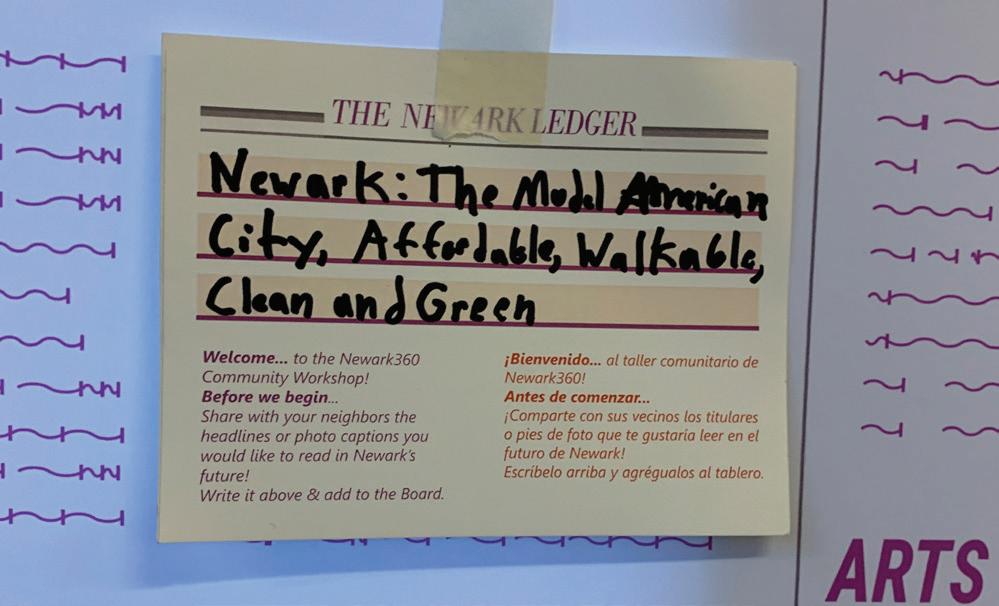 THE NEWARK LEDGER
Newark: The Model American
City, Affordable, Walkable,
Clean and Green
Welcome... to the Newark360
Community Workshop!
Before we begin...
Share with your neighbors the
headlines or photo captions you
would like to read in Newark's
future!
Write it above & add to the Board.
¡Bienvenido... al taller comunitario de
Newark360!
Antes de comenzar...
¡Comparte con sus vecinos los titulares
o pies de foto que te gustaría leer en el
futuro de Newark!
Escríbelo arriba y agrégualos al tablero.
ARTS